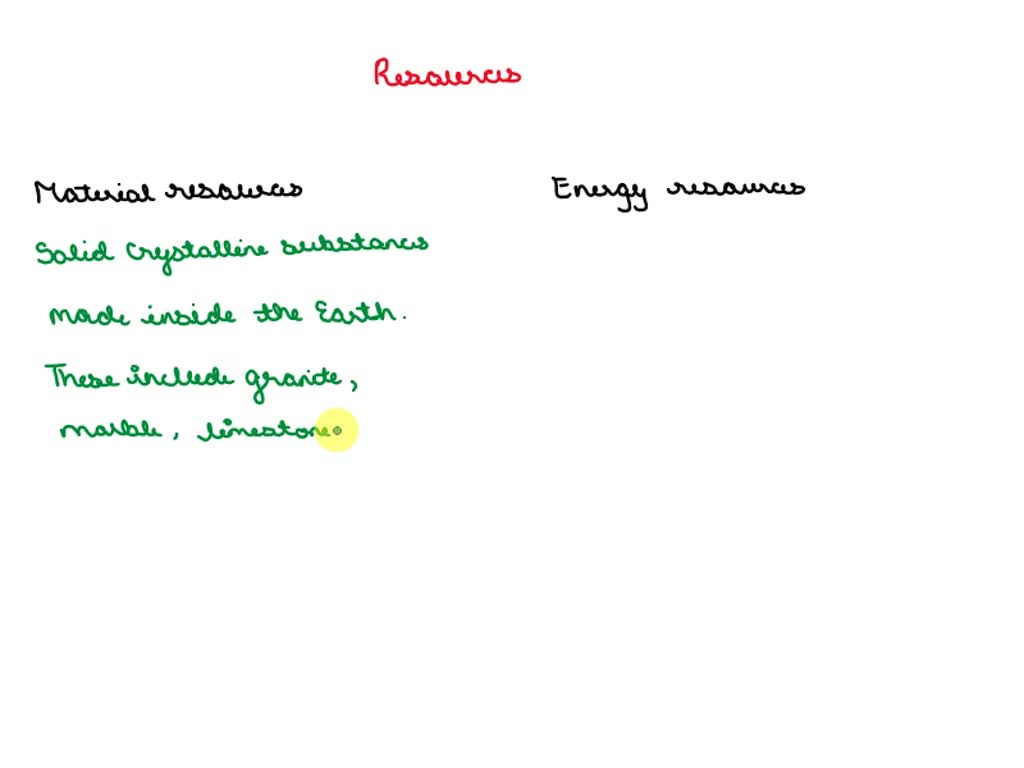 Resources
Material resources
Energy resources
Solid crystalline substances
made inside the Earth.
These include granite,
marble, limestone